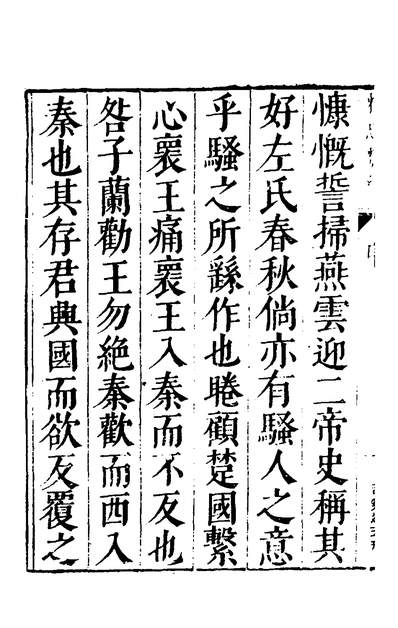 慷慨誓掃燕雲迎二帝史稱其
好左氏春秋倘亦有騷人之意
乎騷之所繇作也睠顧楚國繫
心襄王痛襄王入秦而不反也
咎子蘭勸王勿絶秦歡而西入
秦也其存君興國而欲反覆之